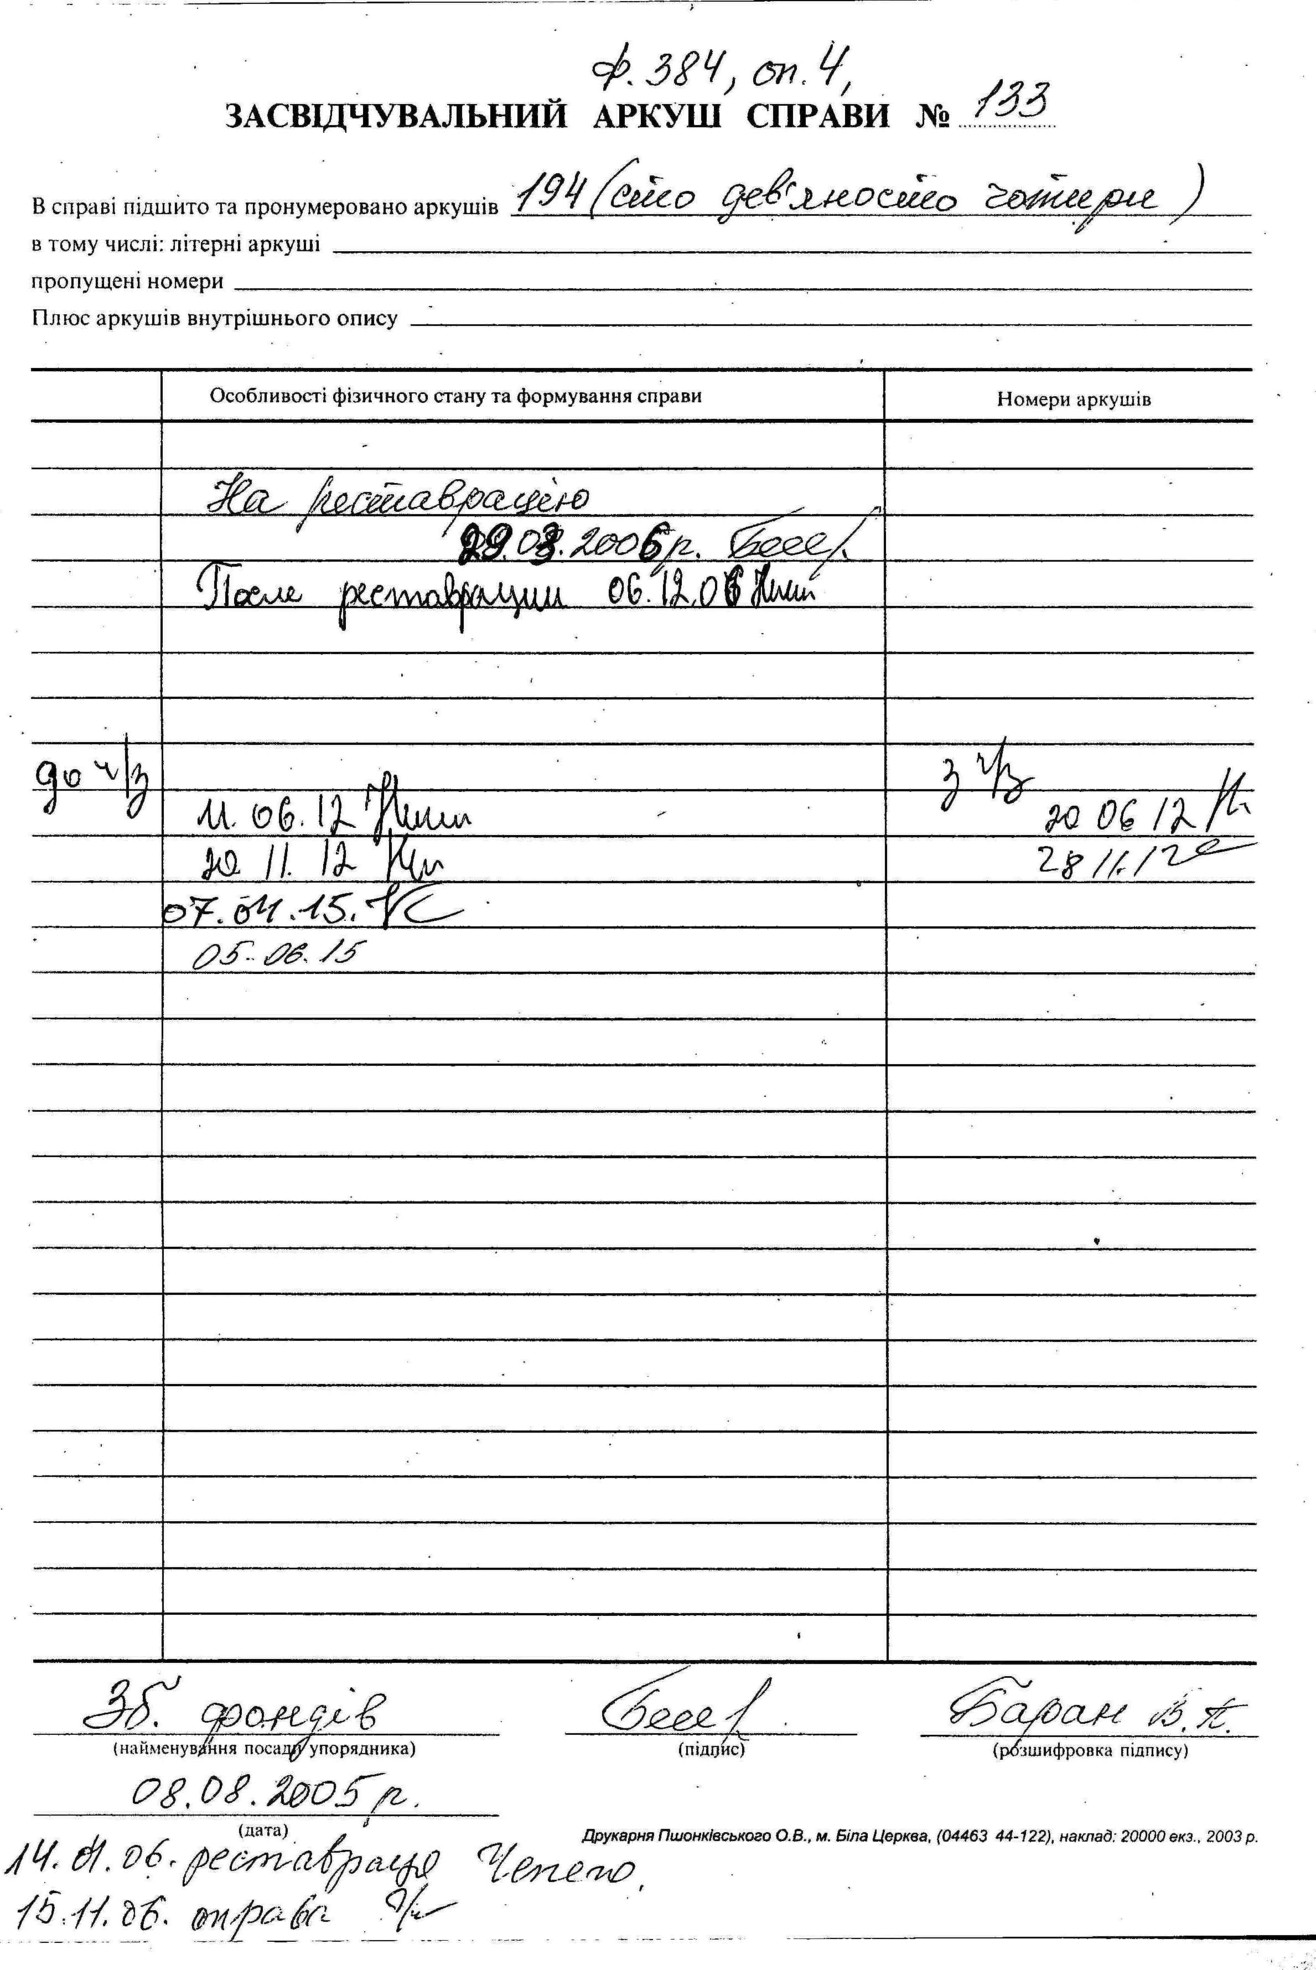 ф. 384, оп. 4,
ЗАСВІДЧУВАЛЬНИЙ АРКУШ СПРАВИ № 133
В справі підшито та пронумеровано аркушів 194 (сто дев'яносто чотири)
в тому числі: літерні аркуші
пропущені номери
Плюс аркушів внутрішнього опису
Особливості фізичного стану та формування справи Номери аркушів
На реставрацію
29.03.2006 р.
После реставрации 06.12.06
до ч/з з ч/з
11.06.12 20 06 12
20 11. 12 28 11.12
07.04.15.
05.06.15
Зб. фондів Баран В.П.
(найменування посади упорядника) (підпис) (розшифровка підпису)
08.08.2005 р.
(дата)
Друкарня Пшонківського О.В., м. Біла Церква, (04463 44-122), наклад: 20000 екз., 2003 р.
14.01.06. реставрація
15.11.06. оправа